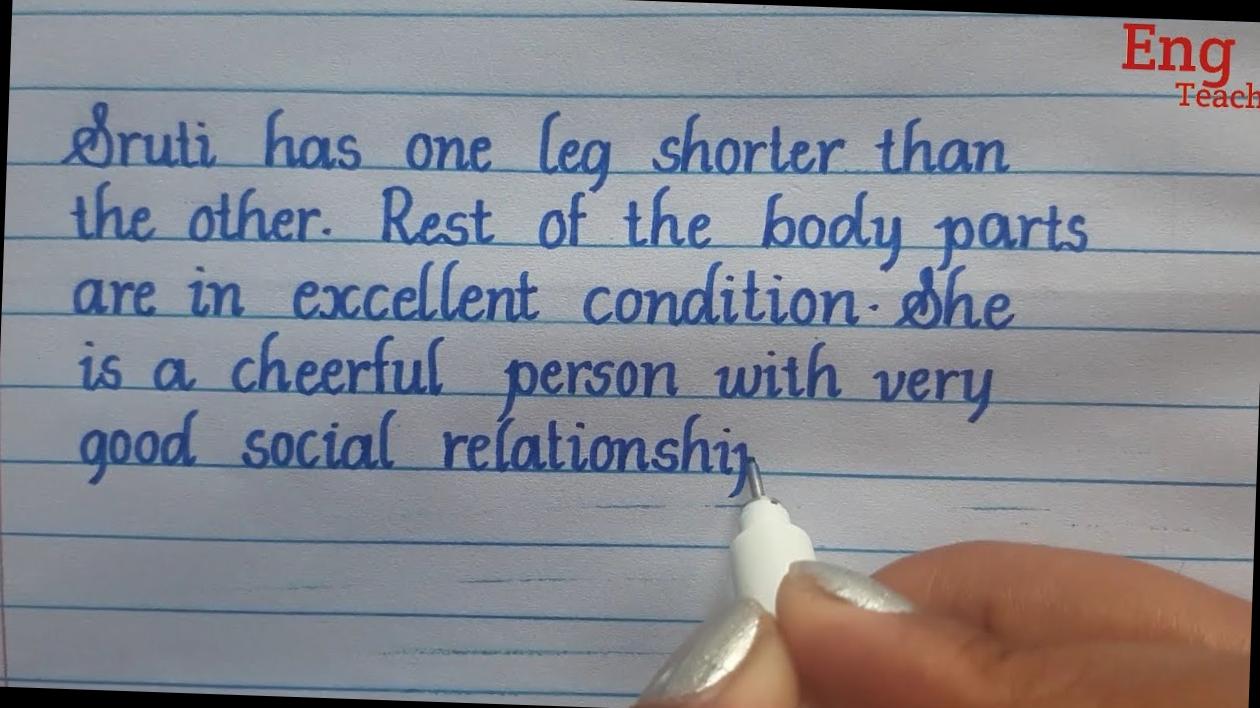 Eng
Teach
Sruti has one leg shorter than
the other. Rest of the body parts
are in excellent condition. She
is a cheerful person with very
good social relationship